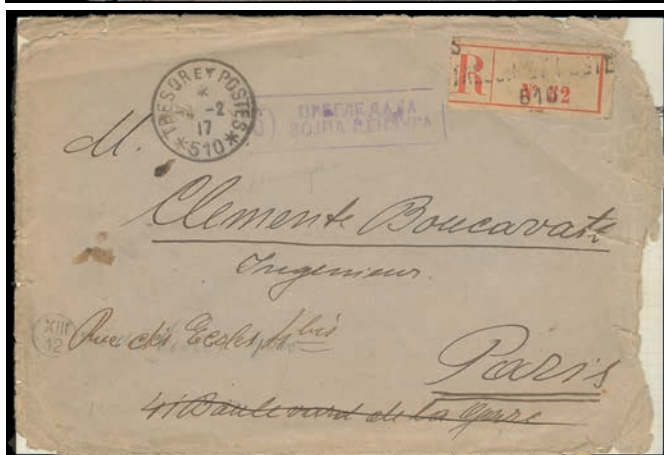 TRESOR ET POSTES
-2
17
*510*
ПРЕГЛЕДАЛА
ВОЈНА ЦЕНЗУРА
R
M.
Clemente Boucavati
Ingenieur.
XIII
12
Rue des Ecoles bis
Paris
41 Boulevard de la Gare